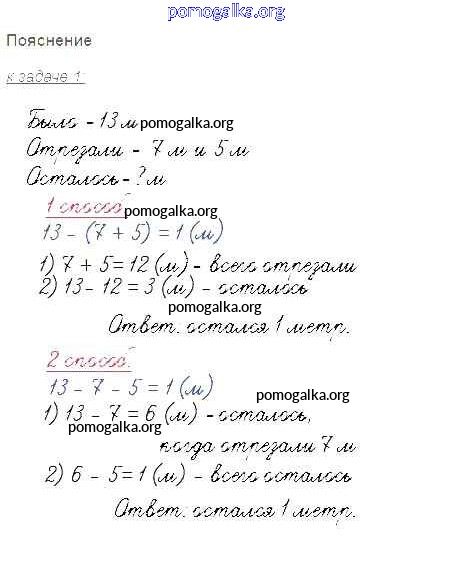 pomogalka.org
Пояснение
к задаче 1:
Было - 13 м pomogalka.org
Отрезали - 7 м и 5 м
Осталось - ? м
1 способ pomogalka.org
13 - (7 + 5) = 1 (м)
1) 7 + 5 = 12 (м) - всего отрезали
2) 13 - 12 = 3 (м) - осталось
pomogalka.org
Ответ: остался 1 метр.
2 способ.
13 - 7 - 5 = 1 (м)
pomogalka.org
1) 13 - 7 = 6 (м) - осталось,
pomogalka.org
когда отрезали 7 м
2) 6 - 5 = 1 (м) - всего осталось
Ответ: остался 1 метр.